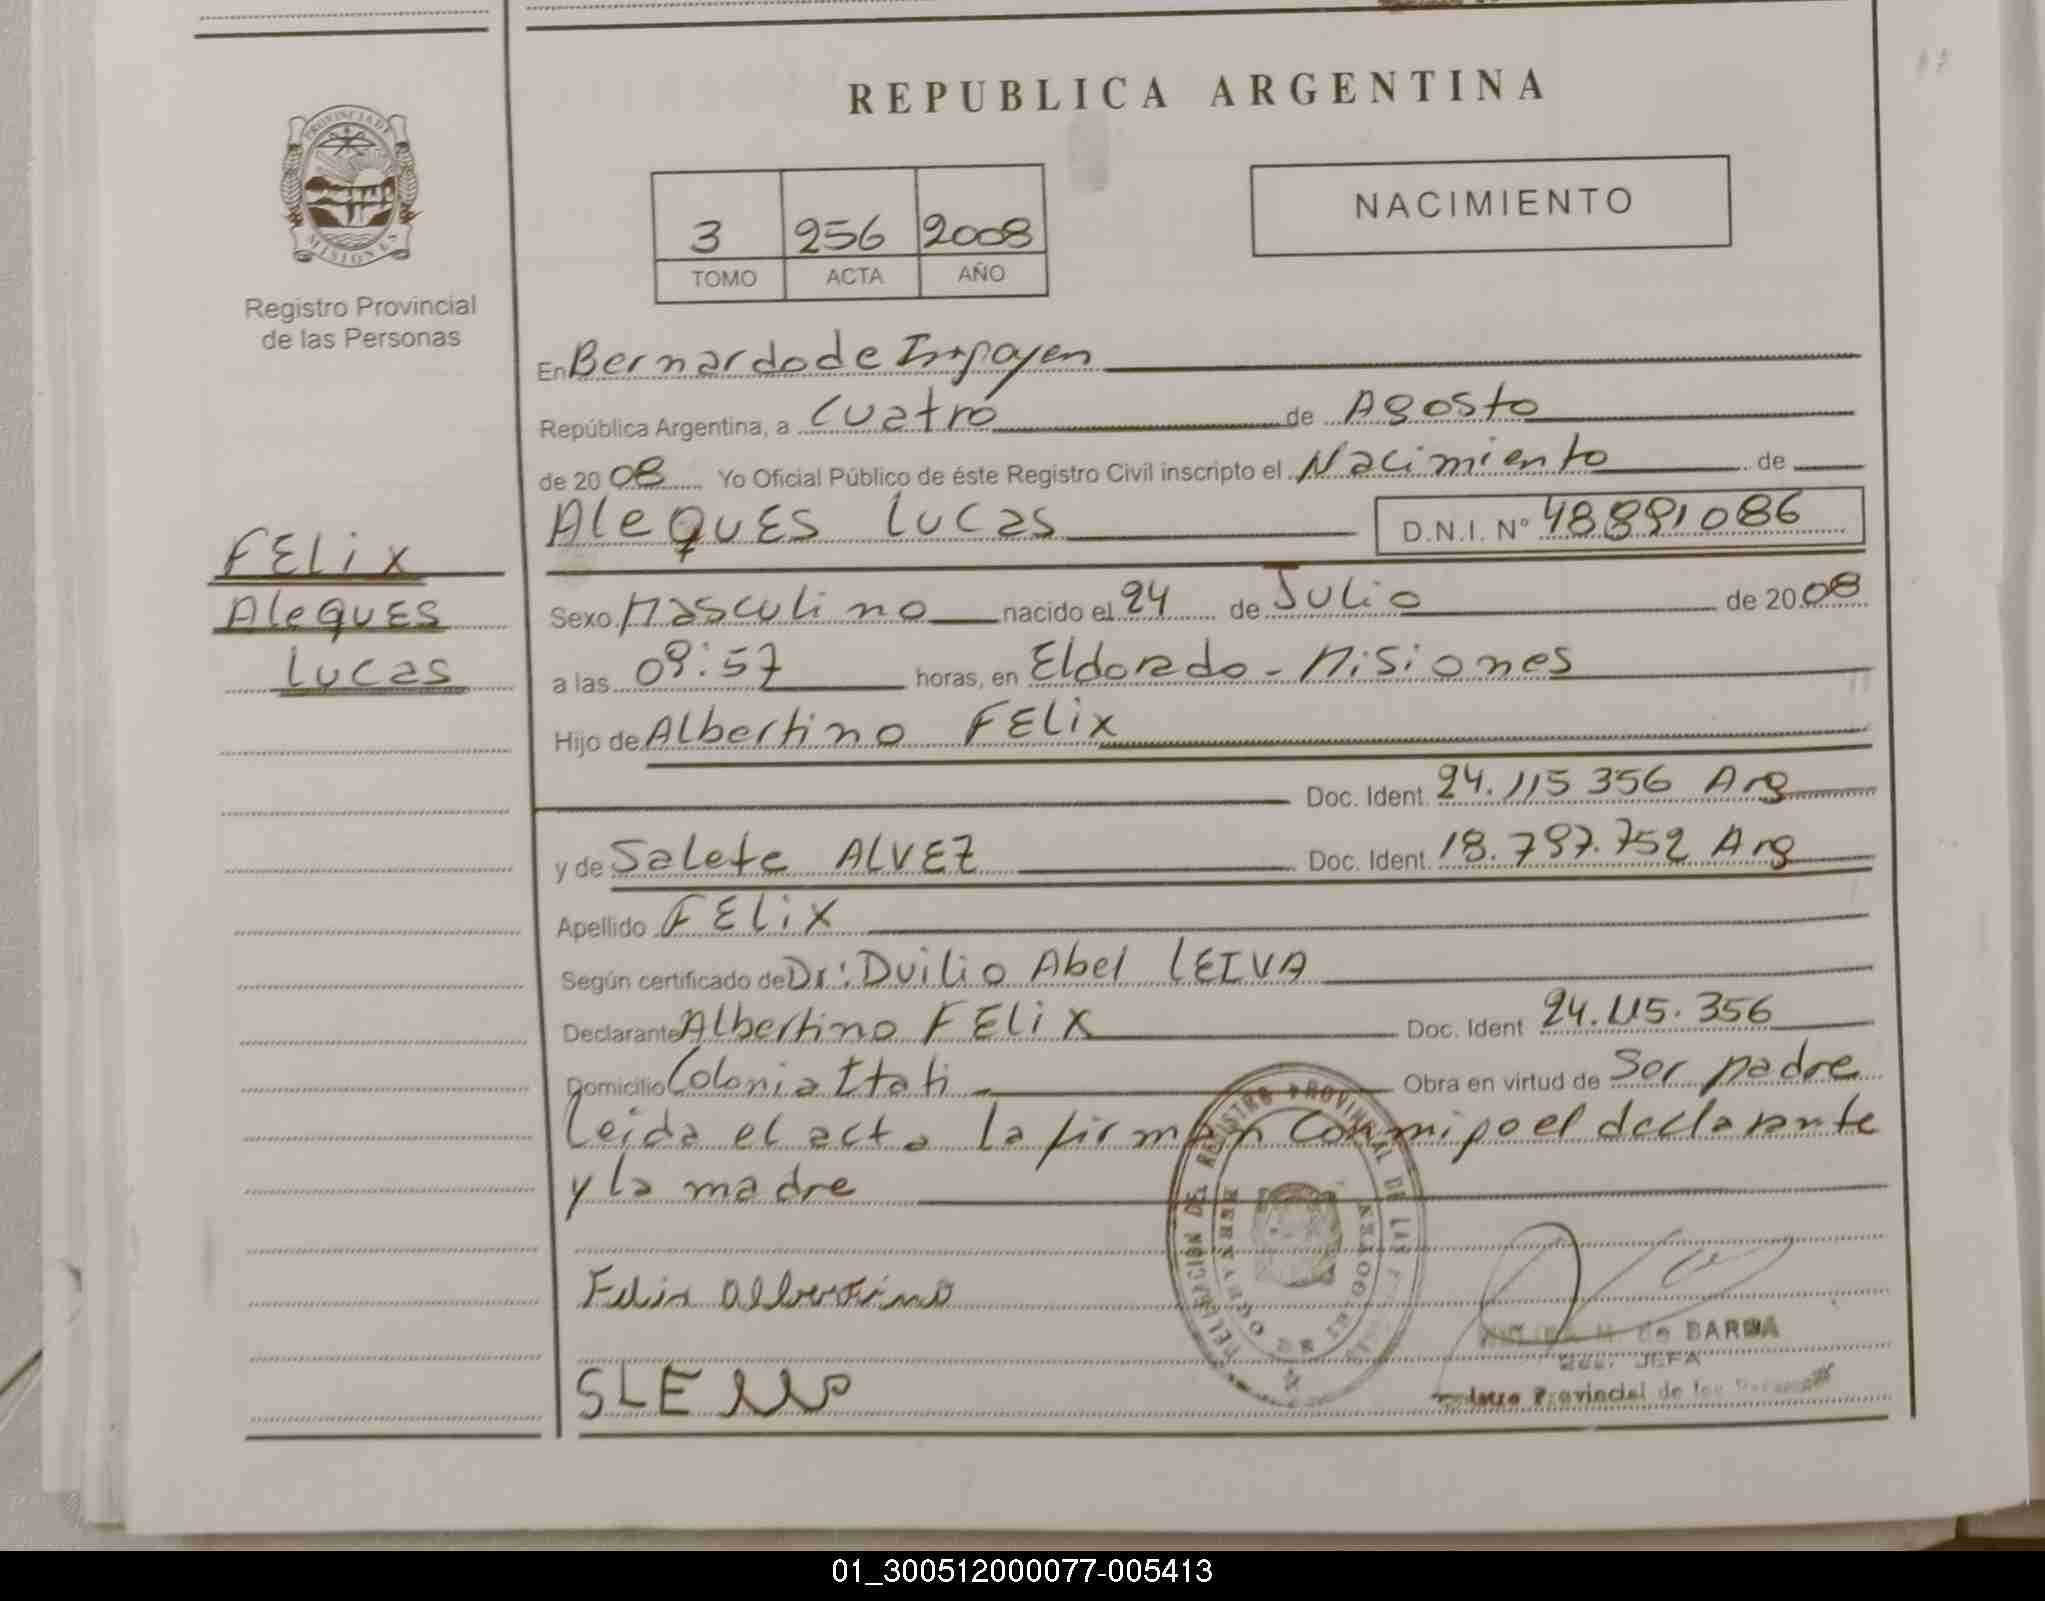 REPUBLICA ARGENTINA
PROVINCIA DE MISIONES
Registro Provincial
de las Personas
3 256 2008
TOMO ACTA AÑO
NACIMIENTO
En Bernardo de Irigoyen
República Argentina, a Cuatro de Agosto
de 2008 Yo Oficial Público de éste Registro Civil inscripto el Nacimiento de
Aleques Lucas D.N.I. Nº 48891086
FELIX
Aleques
Lucas
Sexo Masculino nacido el 24 de Julio de 2008
a las 09:57 horas, en Eldorado - Misiones
Hijo de Albertino FELIX
Doc. Ident. 24.115 356 Arg
y de Salete ALVEZ Doc. Ident. 18.797.752 Arg
Apellido FELIX
Según certificado de Dr: Duilio Abel LEIVA
Declarante Albertino FELIX Doc. Ident 24.115.356
Domicilio Colonia Itati Obra en virtud de Ser padre
Leida el acta la firman conmigo el declarante
y la madre
Felix Albertino
de BARBA
JEFA
Provincial de las
01_300512000077-005413